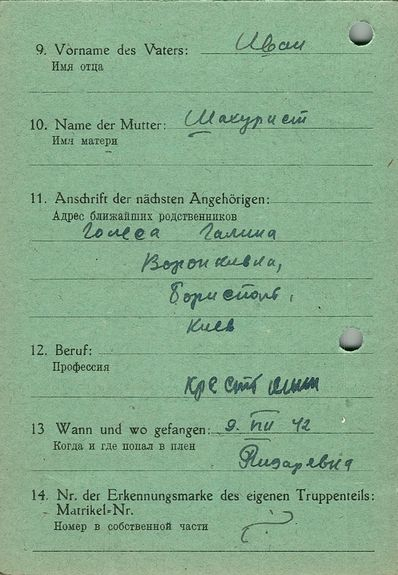 9. Vorname des Vaters: Иван
Имя отца
10. Name der Mutter:
Имя матери
11. Anschrift der nächsten Angehörigen:
Адрес ближайших родственников
Галина
Воронкивка,
Бориспольᵗ,
Киев
12. Beruf:
Профессия
13 Wann und wo gefangen: 9. VII 42
Когда и где попал в плен
Писаревка
14. Nr. der Erkennungsmarke des eigenen Truppenteils:
Matrikel=Nr.
Номер в собственной части